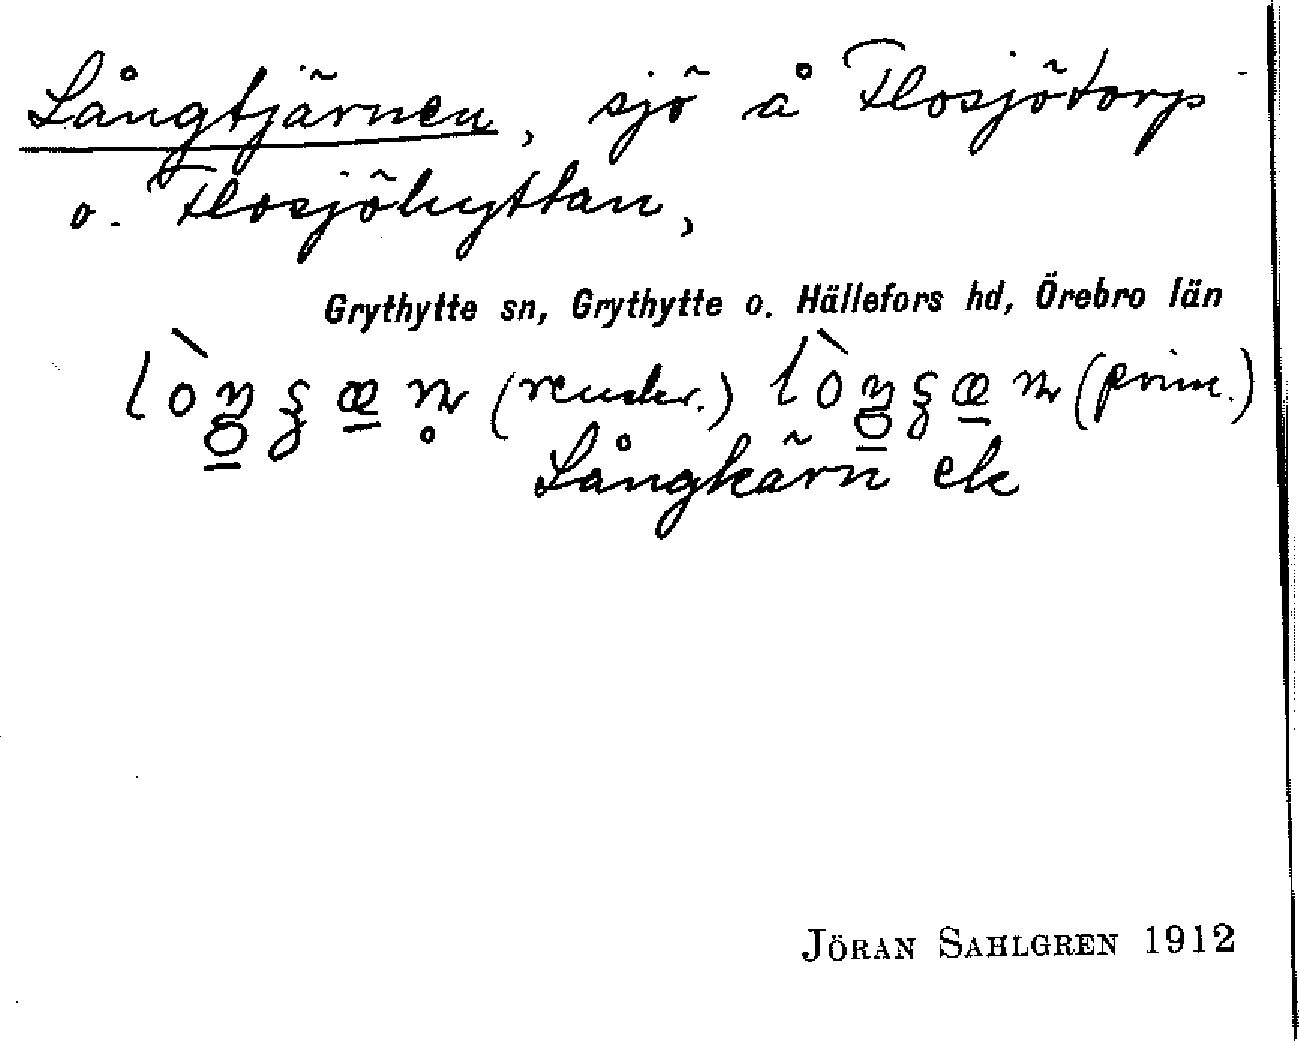 Långtjärnen, sjö å Flosjötorp
o. Flosjöhyttan,
Grythytte sn, Grythytte o. Hällefors hd, Örebro län
(render.) (prim.)
Långkärn ek
JÖRAN SAHLGREN 1912